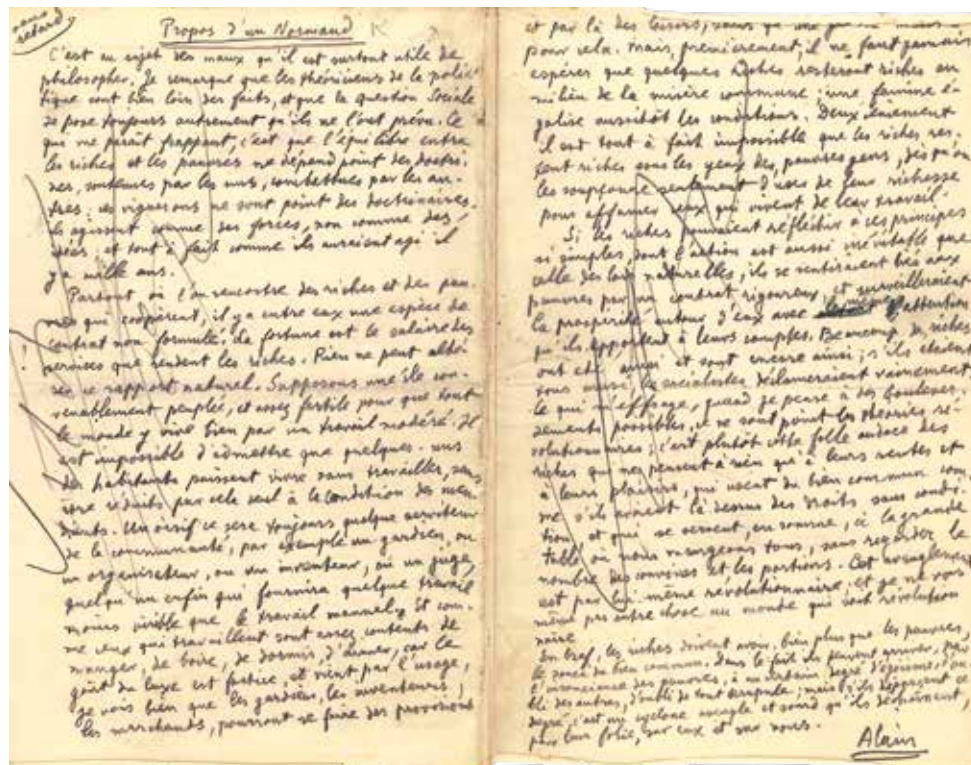 sans
retard
Propos d'un Normand
C'est au sujet des maux qu'il est surtout utile de
philosopher. Je remarque que les théoriciens de la poli-
tique sont bien loin des faits, et que la question Sociale
se pose toujours autrement qu'ils ne l'ont prévu. Ce
qui me paraît frappant, c'est que l'équilibre entre
les riches et les pauvres ne dépend point des doctri-
nes, soutenues par les uns, combattues par les au-
tres; les vignerons ne sont point des doctrinaires.
Ils agissent comme des forces, non comme des
idées, et tout à fait comme ils auraient agi il
y a mille ans.
Partout, où l'on rencontre des riches et des pau-
vres qui coopèrent, il y a entre eux une espèce de
contrat non formulé. La fortune est le salaire des
services que rendent les riches. Rien ne peut alté-
rer ce rapport naturel. Supposons une île con-
venablement peuplée, et assez fertile pour que tout
le monde y vive bien par un travail modéré. Il
est impossible d'admettre que quelques-uns
des habitants puissent vivre sans travailler, sans
être réduits par cela seul à la condition des men-
diants. Un oisif ce sera toujours quelque serviteur
de la communauté, par exemple un gardien, ou
un organisateur, ou un inventeur, ou un juge,
quelqu'un enfin qui fournira quelque travail
moins visible que le travail manuel. Et com-
me ceux qui travaillent sont assez contents de
manger, de boire, de dormir, d'aimer, car le
goût du luxe est factice, et vient par l'usage,
je vois bien que les gardiens, les inventeurs,
les marchands, pourront se faire des provisions
et par là des loisirs,
pour cela. Mais, premièrement, il ne faut jamais
espérer que quelques riches resteront riches au
milieu de la misère commune: une famine é-
galise aussitôt les conditions. Deuxièmement
il est tout à fait impossible que les riches res-
tent riches sous les yeux des pauvres gens, dès qu'on
les soupçonne seulement d'user de leur richesse
pour affamer ceux qui vivent de leur travail.
Si les riches pouvaient réfléchir à ces principes
si simples, dont l'action est aussi inévitable que
celle des lois naturelles, ils se sentiraient liés aux
pauvres par un contrat rigoureux, et surveilleraient
la prospérité autour d'eux avec l'attention
qu'ils apportent à leurs comptes. Beaucoup de riches
ont été ainsi et sont encore ainsi; s'ils étaient
tous ainsi, les socialistes déclameraient vainement
Ce qui m'effraye, quand je pense à des boulever-
sements possibles, ce ne sont point les théories ré-
volutionnaires; c'est plutôt cette folle audace des
riches qui ne pensent à rien qu'à leurs rentes et
à leurs plaisirs, qui usent du bien commun com-
me s'ils avaient là dessus des droits sans condi-
tion, et qui se servent, en somme, à la grande
table où nous mangeons tous, sans regarder le
nombre des convives et les portions. Cet aveuglement
est par lui-même révolutionnaire; et je ne vois
même pas autre chose au monde qui soit révolution
naire.
En bref, les riches doivent avoir, bien plus que les pauvres,
le souci du bien commun. Dans le fait ils peuvent arriver, par
l'insouciance des pauvres, à un certain degré d'égoïsme, d'ou-
bli des autres, d'oubli de tout scrupule; mais s'ils dépassent ce
degré, c'est un cyclone aveugle et sourd qu'ils déchaînent,
par leur folie, sur eux et sur nous.
Alain